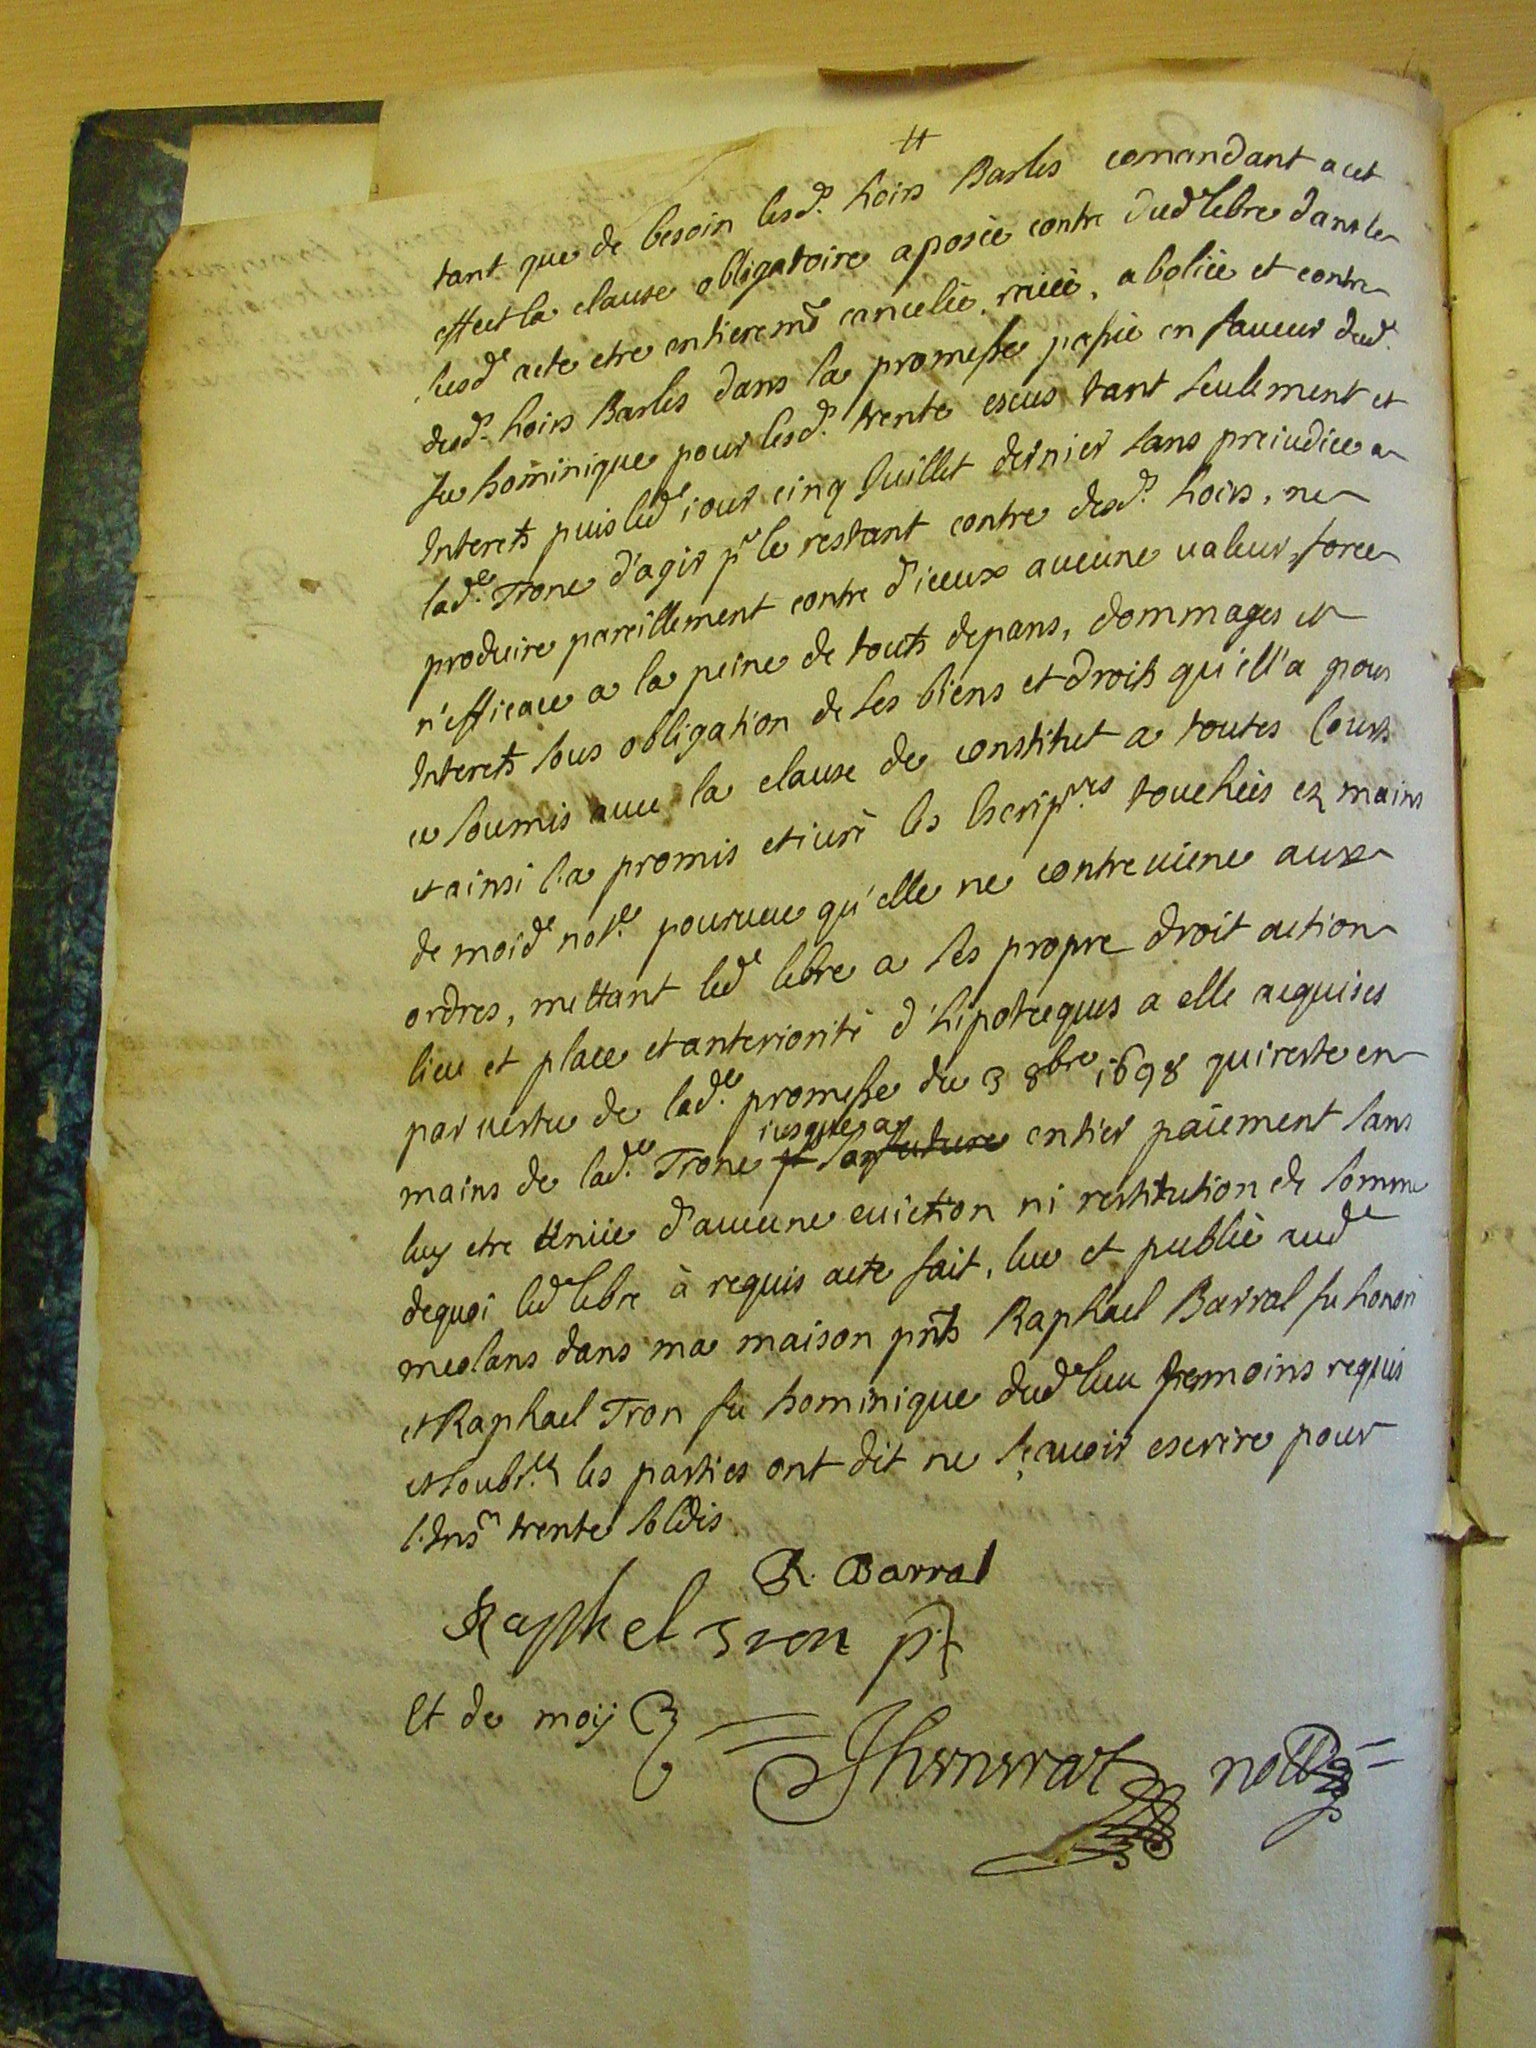 tant que de besoin lesd.s hoirs Barles comandant a cet
effect la clause obligatoire aposée contre dud lebre dans le
susd acte etre entierem.t cancelée, raiée, aboliée et contre
desd.s hoirs Barles dans la promesse passée en faueur dud.
fu hominique pour lesd.s trente escus tant seulement et
Interets puis led iour cinq Juillet dernier sans preiudice a
lad.e Trone d'agir pr le restant contre desd.s hoirs, ne
produire pareillement contre d'iceux aucune valeur, force
n'efficace a la peine de touts depans, dommages et
Interets sous obligation de ses biens et droits qu'ell'a pour
ce soumis auec la clause de constitut a toutes Cours
et ainsi l'a promis et iuré les Escript.res touchées ez mains
de moid not.e pourueu qu'elle ne contreuiene aux
ordres, mettant led lebre a ses propre droit action
lieu et place et anteriorité d'hipoteques a elle acquises
par vertu de lad.e promesse du 3 8bre 1698 qui reste en
mains de lad.e Trone iusques a entier paiement sans
luy etre tenuée d'aucune euiction ni restitution de somme
dequoi led lebre à requis acte fait, lu et publié aud
meolans dans ma maison pnts Raphael Barral fu honoré
et Raphael Tron fu hominique dud lieu temoins requis
et soubs.ez les parties ont dit ne sçauoir escrire pour
l'Ins.on trente soldis
R. Barral
Raphel tron pt
Et de moy
not.re